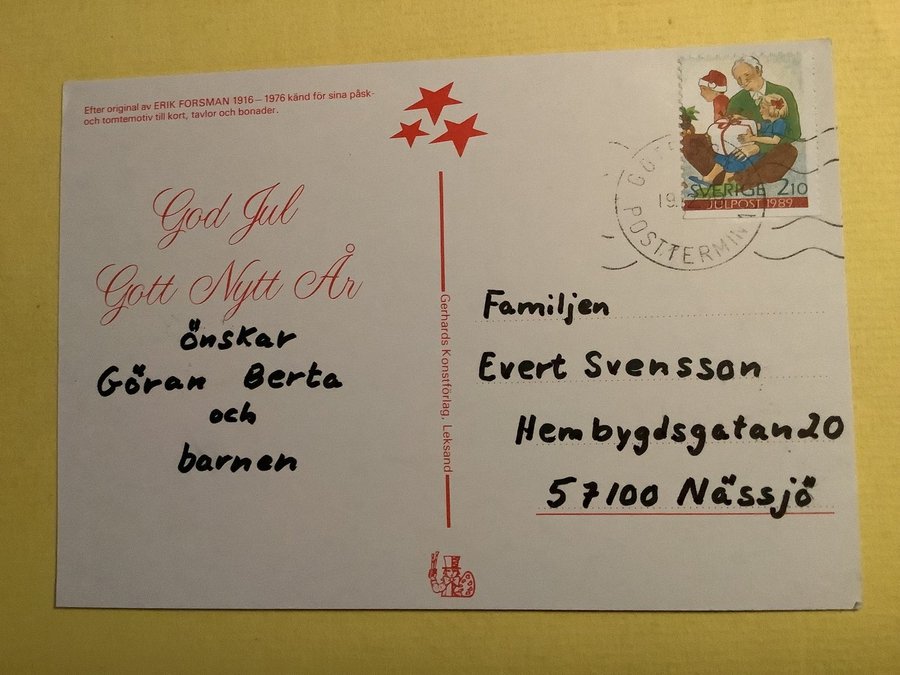 Efter original av ERIK FORSMAN 1916–1976 känd för sina påsk-
och tomtemotiv till kort, tavlor och bonader.
God Jul
Gott Nytt År
önskar
Göran Berta
och
barnen
Gerhards Konstförlag, Leksand
SVERIGE 2.10
JULPOST 1989
POSTTERMIN
Familjen
Evert Svensson
Hembygdsgatan 20
57100 Nässjö